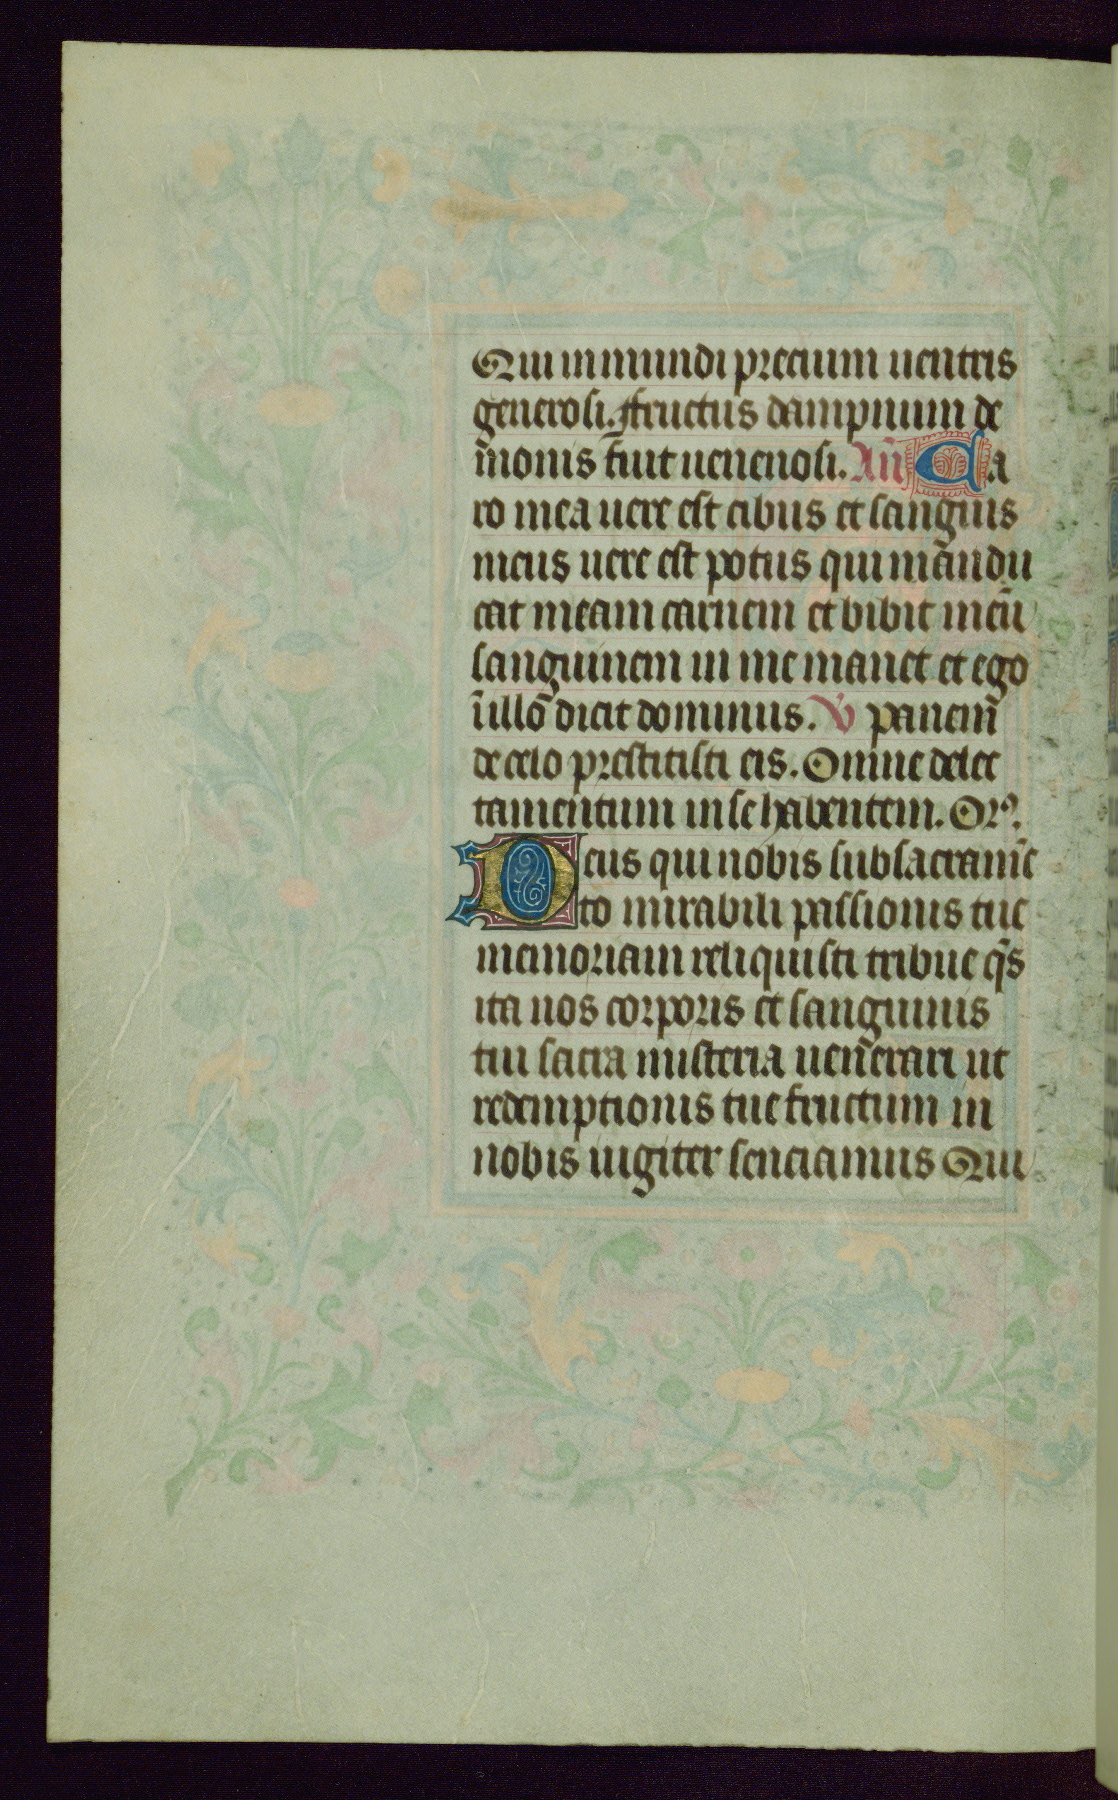 Qui in mundi precium uentris
generosi. ffructus dampnum de
m̄onis fuit uenenosi. Añ Ca
ro mea uere est cibus et sanguis
meus uere est potus qui mandu
cat meam carnem et bibit meū
sanguinem in me manet et ego
ī illo dicit dominus. V̄ panem
de celo prestitisti eis. Omne delec
tamentum in se habentem. Or̄.
Deus qui nobis sub sacramē
to mirabili passionis tue
memoriam reliquisti tribue q̄s
ita nos corporis et sanguinis
tui sacra misteria uenerari ut
redemptionis tue fructum in
nobis iugiter senciamus Qui